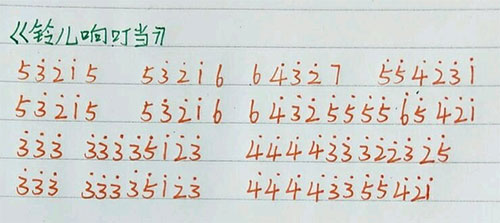 《铃儿响叮当》
53215 53216 64327 554231
53215 53216 6432555565421
333 33335123 444433322325
333 33335123 44443355421